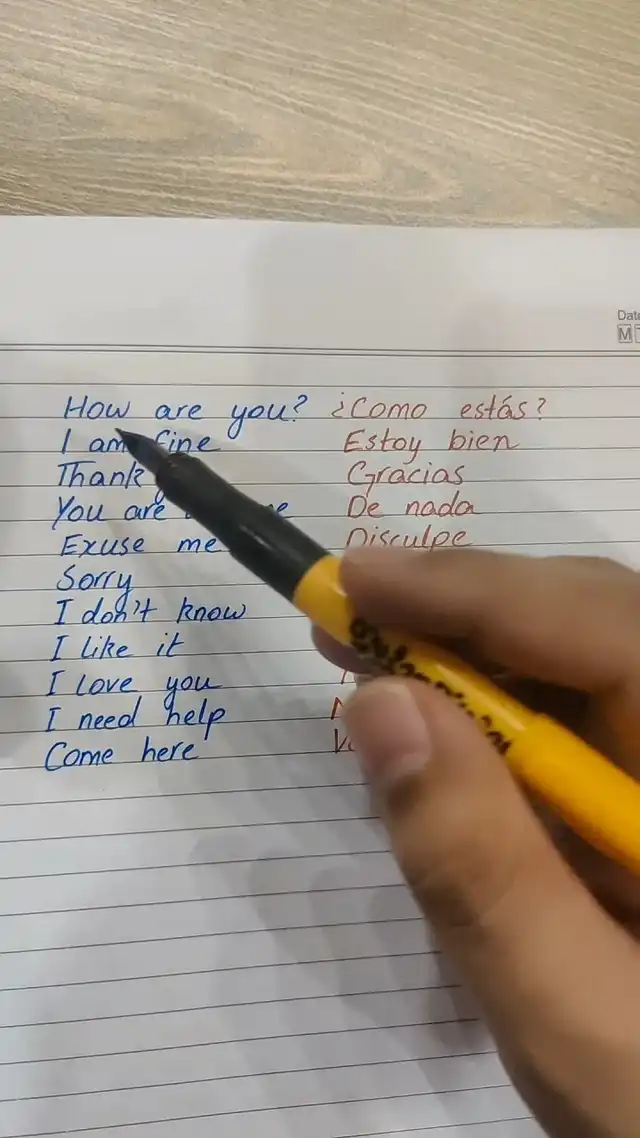 Date
M
How are you? ¿Como estás?
I am fine Estoy bien
Thank Gracias
You are De nada
Exuse me Disculpe
Sorry
I don't know
I like it
I love you
I need help
Come here